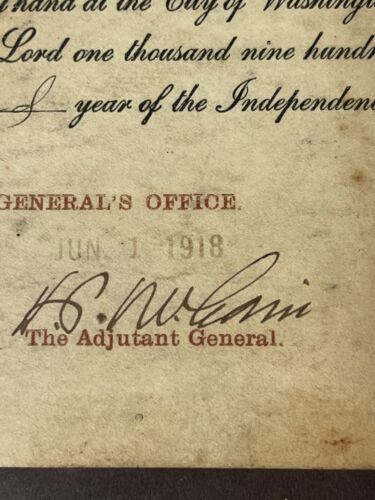 hand at the City of Washingt
Lord one thousand nine hundr
year of the Independen
GENERAL'S OFFICE.
JUN 1 1918
H.P. McCain
The Adjutant General.